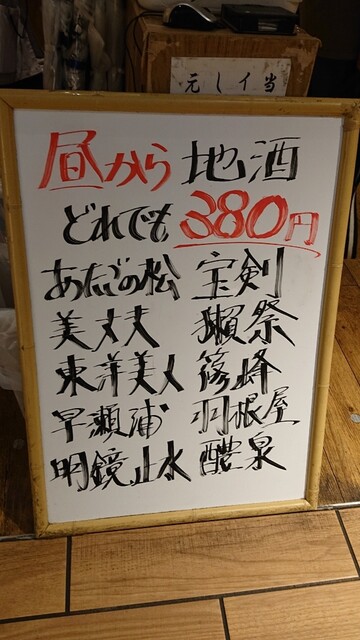 元し亻当
昼から地酒
どれでも380円
あたごの松 宝剣
美丈夫 獺祭
東洋美人 篠峰
早瀬浦 羽根屋
明鏡止水 醴泉